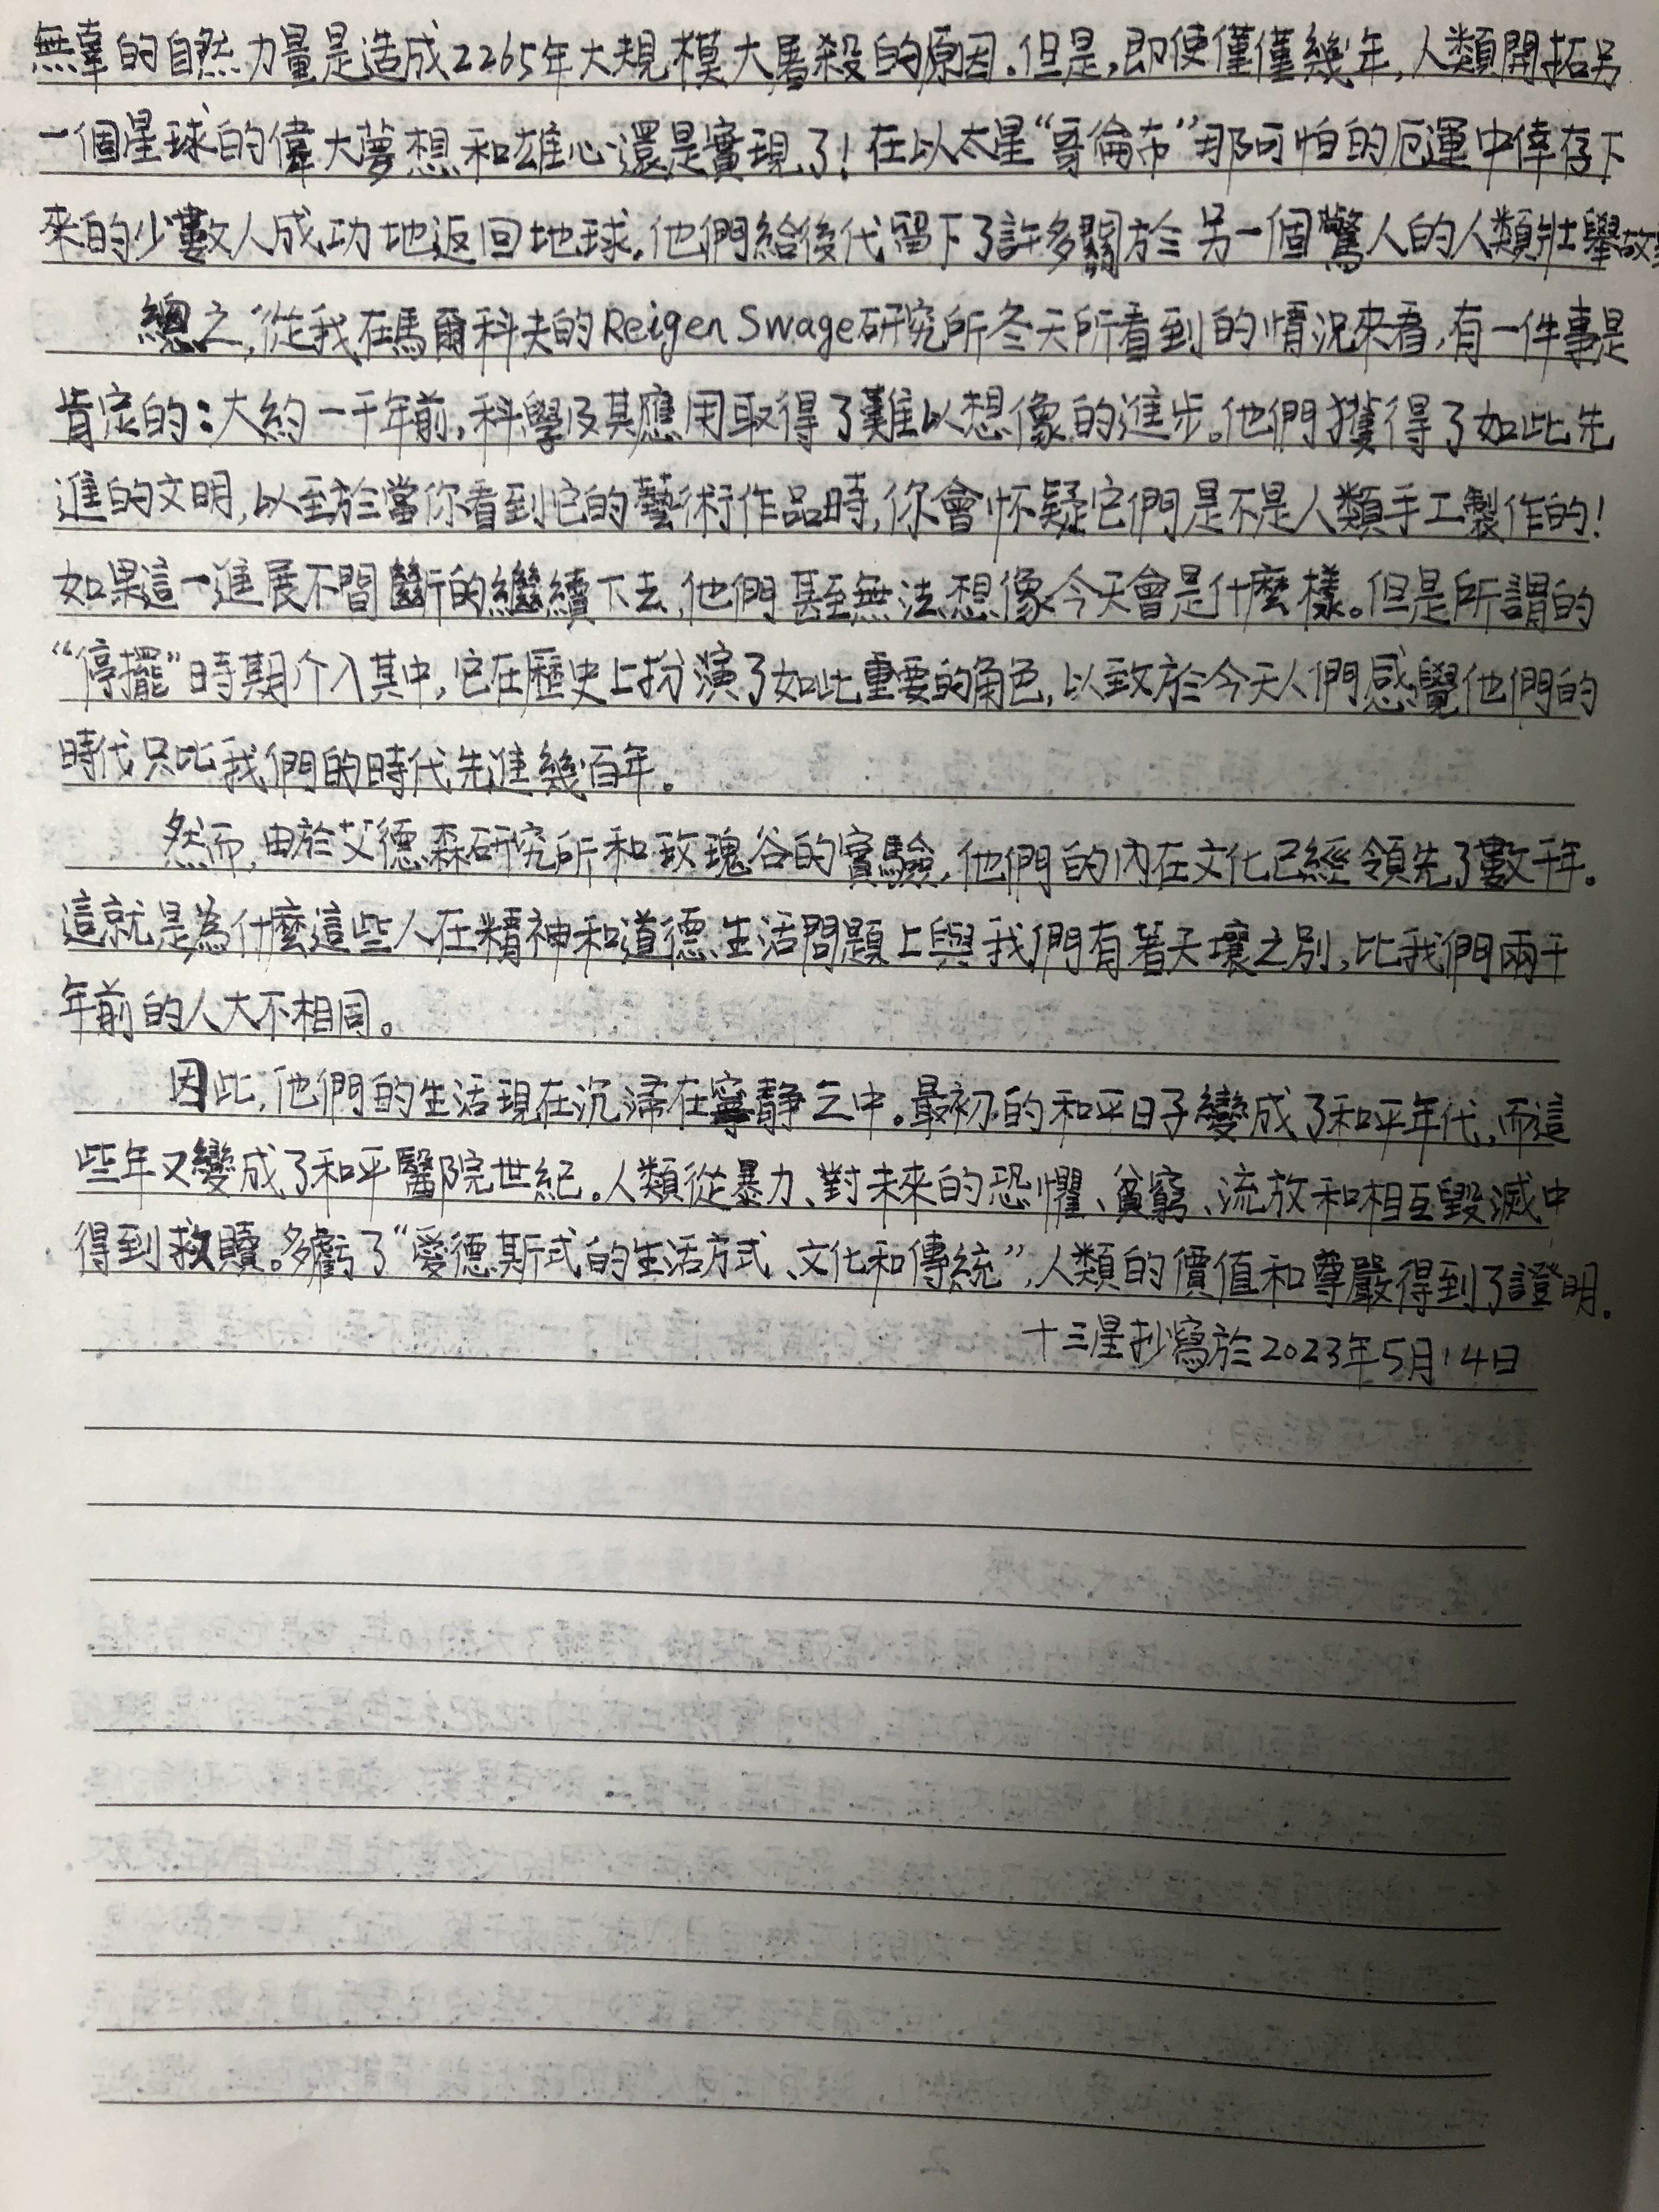 無辜的自然力量是造成2265年大規模大屠殺的原因.但是,即使僅僅幾年,人類開拓另
一個星球的偉大夢想和雄心還是實現了!在以太星“哥倫布”那可怕的厄運中倖存下
來的少數人成功地返回地球,他們給後代留下了許多關於另一個驚人的人類壯舉故事
總之,從我在馬爾科夫的Reigen Swage研究所冬天所看到的情況來看,有一件事是
肯定的:大約一千年前,科學及其應用取得了難以想像的進步。他們獲得了如此先
進的文明,以至於當你看到它的藝術作品時,你會怀疑它們是不是人類手工製作的!
如果這一進展不間斷的繼續下去,他們甚至無法想像今天會是什麼樣。但是所謂的
“停擺”時期介入其中,它在歷史上扮演了如此重要的角色,以致於今天人們感覺他們的
時代只比我們的時代先進幾百年。
然而,由於艾德森研究所和玫瑰谷的實驗,他們的內在文化已經領先了數千年。
這就是為什麼這些人在精神和道德生活問題上與我們有著天壤之別,比我們兩千
年前的人大不相同。
因此,他們的生活現在沉浸在寧靜之中。最初的和平日子變成了和平年代,而這
些年又變成了和平醫院世紀。人類從暴力、對未來的恐懼、貧窮、流放和相互毀滅中
得到救贖。多虧了“愛德斯式的生活方式、文化和傳統”,人類的價值和尊嚴得到了證明.
十三星抄寫於2023年5月14日